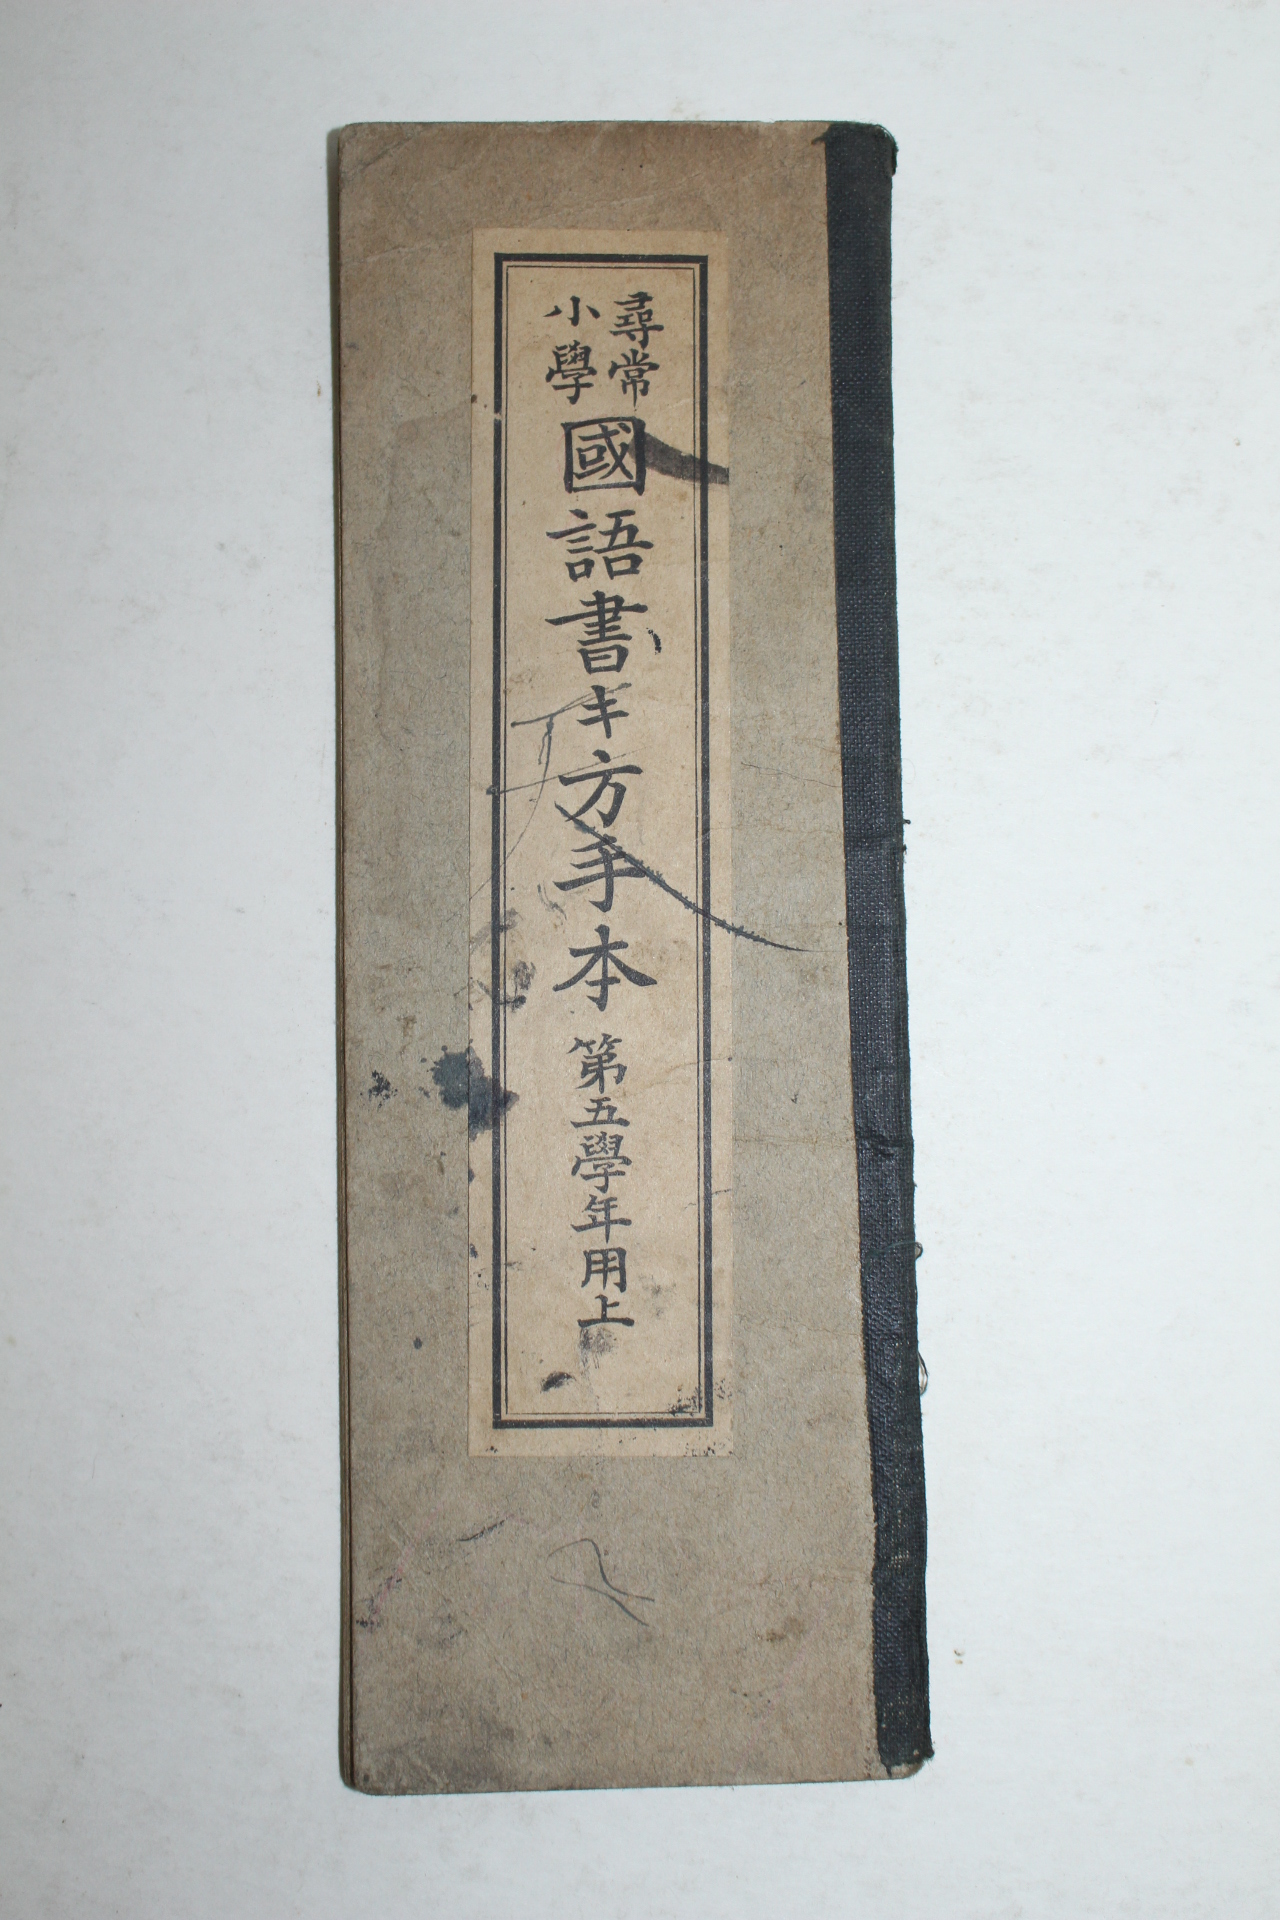 尋常
小學
國語書キ方手本 第五學年用上